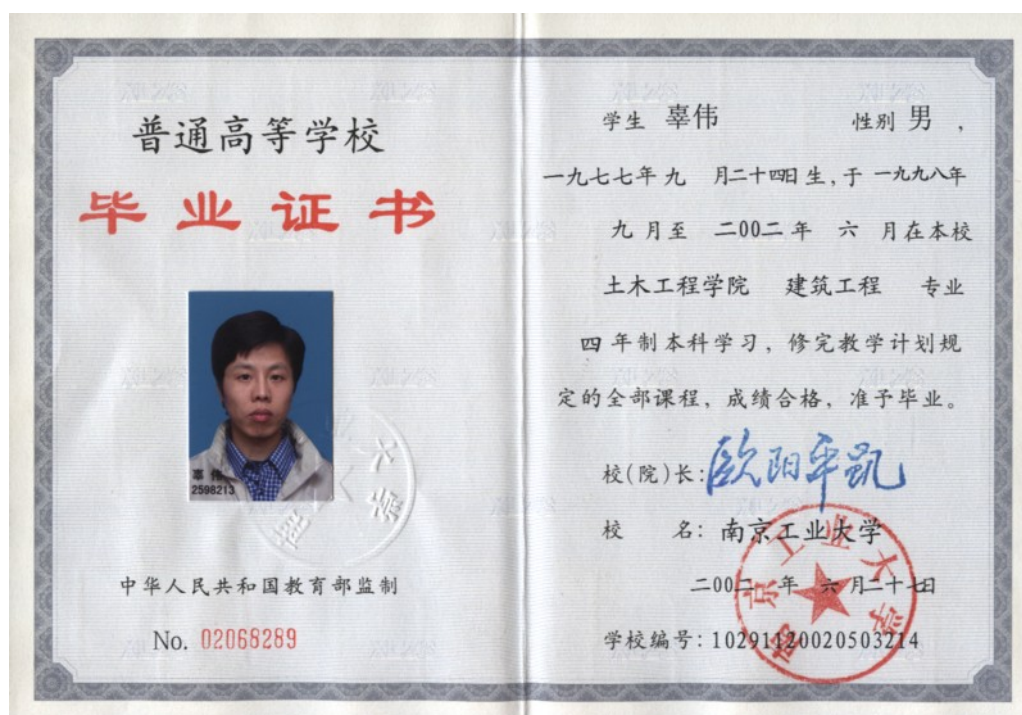 普通高等学校
毕业证书
辜伟
2598213
中华人民共和国教育部监制
No. 02068289
学生 辜伟 性别 男,
一九七七年九 月二十四日生,于 一九九八年
九月至 二00二年 六 月在本校
土木工程学院 建筑工程 专业
四年制本科学习,修完教学计划规
定的全部课程,成绩合格,准予毕业。
校(院)长:欧阳平凯
校 名:南京工业大学
二00二 年 六 月二十七日
学校编号:10291120020503214
南京工业大学